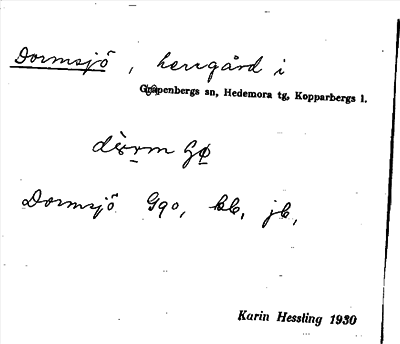 Dormsjö, herrgård i
Grÿpenbergs sn, Hedemora tg, Kopparbergs l.
Dormsjö Gqo, kb, jb,
Karin Hessling 1930